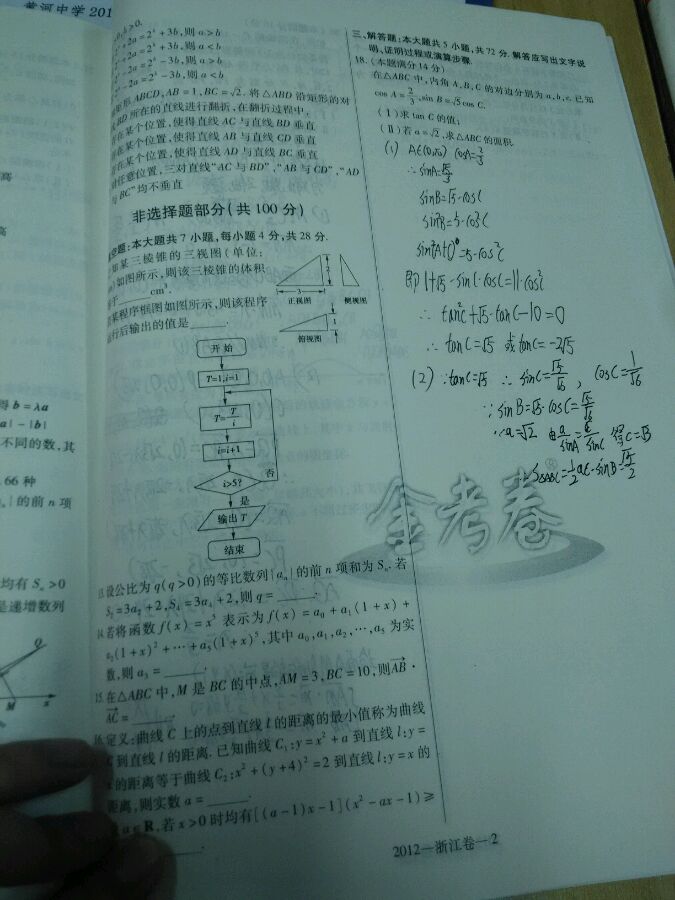 黄河中学 201
b>0.
+2a=2ᵇ+3b,则 a>b
+2a=2ᵇ+3b,则 a<b
-2a=2ᵇ-3b,则 a>b
-2a=2ᵇ-3b,则 a<b
形 ABCD,AB=1,BC=√2. 将△ABD 沿矩形的对
BD 所在的直线进行翻折,在翻折过程中,
在某个位置,使得直线 AC 与直线 BD 垂直
在某个位置,使得直线 AB 与直线 CD 垂直
在某个位置,使得直线 AD 与直线 BC 垂直
任意位置,三对直线“AC 与 BD”,“AB 与 CD”,“AD
与 BC”均不垂直
非选择题部分(共 100 分)
空题:本大题共 7 小题,每小题 4 分,共 28 分.
知某三棱锥的三视图(单位:
)如图所示,则该三棱锥的体积
于______cm³.
某程序框图如图所示,则该程序
运行后输出的值是______.
2
3
正视图
侧视图
1
俯视图
开始
T=1,i=1
T=T/i
i=i+1
i>5?
否
是
输出 T
结束
13.设公比为 q(q>0)的等比数列{aₙ}的前 n 项和为 Sₙ. 若
S₂=3a₂+2,S₄=3a₄+2,则 q=______.
14.若将函数 f(x)=x⁵ 表示为 f(x)=a₀+a₁(1+x)+
a₂(1+x)²+⋯+a₅(1+x)⁵,其中 a₀,a₁,a₂,⋯,a₅ 为实
数,则 a₃=______.
15.在△ABC 中,M 是 BC 的中点,AM=3,BC=10,则AB·
AC=______.
16.定义:曲线 C 上的点到直线 l 的距离的最小值称为曲线
C 到直线 l 的距离. 已知曲线 C₁:y=x²+a 到直线 l:y=
x 的距离等于曲线 C₂:x²+(y+4)²=2 到直线 l:y=x 的
距离,则实数 a=______.
a∈R,若 x>0 时均有[(a-1)x-1](x²-ax-1)≥
三、解答题:本大题共 5 小题,共 72 分. 解答应写出文字说
明、证明过程或演算步骤.
18.(本题满分 14 分)
在△ABC 中,内角 A,B,C 的对边分别为 a,b,c. 已知
cos A=2/3,sin B=√5cos C.
(Ⅰ)求 tan C 的值;
(Ⅱ)若 a=√2,求△ABC 的面积.
(1) A∈(0,π) cosA=2/3
∴sinA=√5/3
sinB=√5·cosC
sin²B=5·cos²C
即 1+√5·sinC·cosC=11·cos²C
∴ tan²C+√5·tanC-10=0
∴ tanC=√5 或 tanC=-2√5
(2) ∵tanC=√5 ∴ sinC=√5/√6 , cosC=1/√6
∵sinB=√5·cosC=√5/√6
∵a=√2 由a/sinA=c/sinC 得C=√3
∴S△ABC=1/2ac·sinB=√5/2
金考卷
®
高
得 b=λa
a|-|b|
不同的数,其
66 种
的前 n 项
均有 Sₙ>0
是递增数列
Q
M
x
2012—浙江卷—2